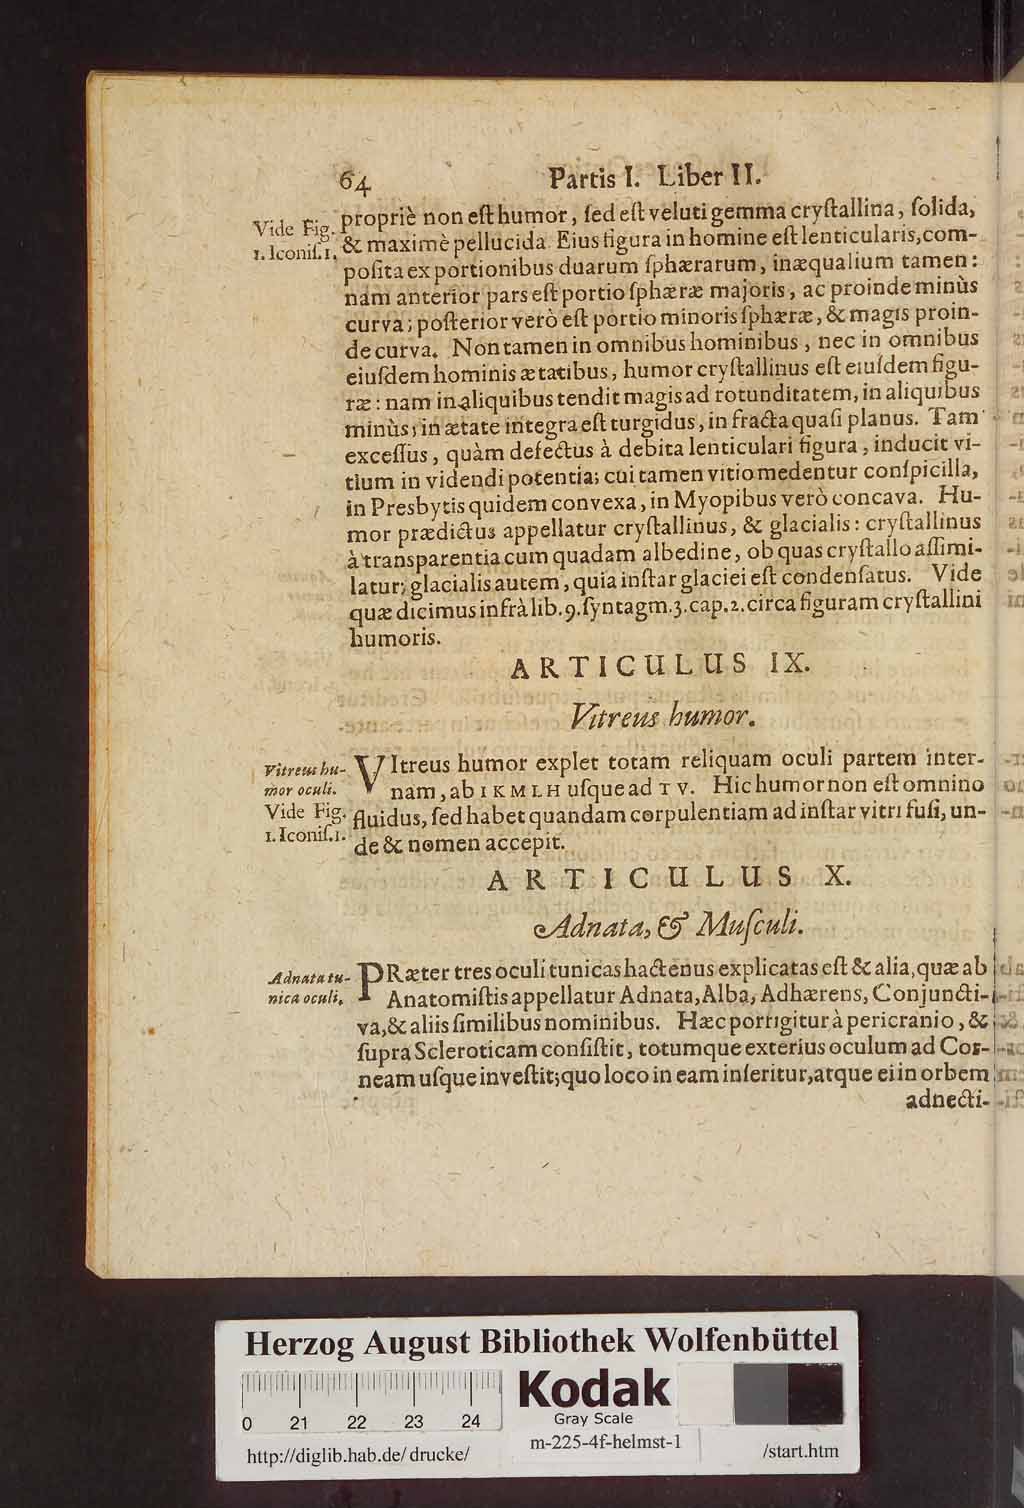 64 Partis I. Liber II.
Vide Fig.
1. Iconiſ. 1.
propriè non eſt humor, ſed eſt veluti gemma cryſtallina, ſolida,
& maximè pellucida. Eius figura in homine eſt lenticularis, com-
poſita ex portionibus duarum ſphærarum, inæqualium tamen:
nam anterior pars eſt portio ſphæræ majoris, ac proinde minùs
curva; poſterior verò eſt portio minoris ſphæræ, & magis proin-
de curva. Non tamen in omnibus hominibus, nec in omnibus
eiuſdem hominis ætatibus, humor cryſtallinus eſt eiuſdem figu-
ræ: nam in aliquibus tendit magis ad rotunditatem, in aliquibus
minùs; in ætate integra eſt turgidus, in fracta quaſi planus. Tam
exceſſus, quàm defectus à debita lenticulari figura, inducit vi-
tium in videndi potentia; cui tamen vitio medentur conſpicilla,
in Presbytis quidem convexa, in Myopibus verò concava. Hu-
mor prædictus appellatur cryſtallinus, & glacialis: cryſtallinus
à transparentia cum quadam albedine, ob quas cryſtallo aſſimi-
latur; glacialis autem, quia inſtar glaciei eſt condenſatus. Vide
quæ dicimus infrà lib. 9. ſyntagm. 3. cap. 2. circa figuram cryſtallini
humoris.
ARTICULUS IX.
Vitreus humor.
Vitreus hu-
mor oculi.
Vide Fig.
1. Iconiſ. 1.
VItreus humor explet totam reliquam oculi partem inter-
nam, ab I K M L H uſque ad T V. Hic humor non eſt omnino
fluidus, ſed habet quandam corpulentiam ad inſtar vitri fuſi, un-
de & nomen accepit.
ARTICULUS X.
Adnata, & Muſculi.
Adnata tu-
nica oculi.
PRæter tres oculi tunicas hactenus explicatas eſt & alia, quæ ab
Anatomiſtis appellatur Adnata, Alba, Adhærens, Conjuncti-
va, & aliis ſimilibus nominibus. Hæc porrigitur à pericranio, &
ſupra Scleroticam conſiſtit, totumque exterius oculum ad Cor-
neam uſque inveſtit; quo loco in eam inſeritur, atque ei in orbem
adnecti-
Herzog August Bibliothek Wolfenbüttel
0 21 22 23 24
Kodak
Gray Scale
http://diglib.hab.de/ drucke/
m-225-4f-helmst-1
/start.htm